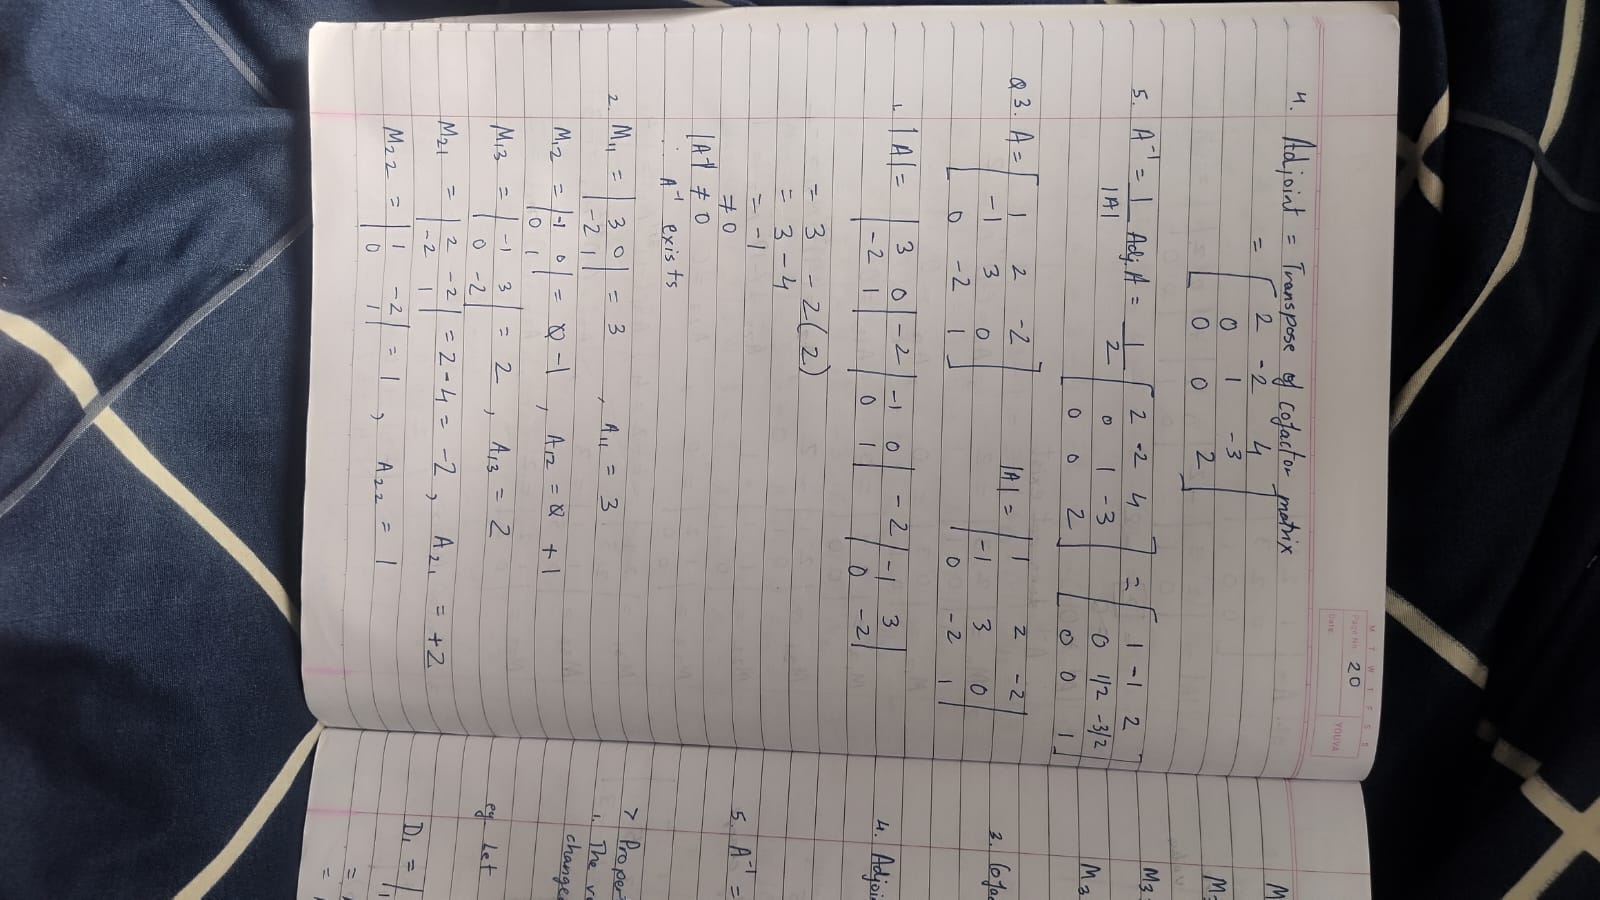 M T W T F S S
Page No. 20
Date:
YOUVA
4. Adjoint = Transpose of cofactor matrix
= [ 2 -2 4
0 1 -3
0 0 2 ]
5. A⁻¹ = 1/|A| Adj. A = 1/2 [ 2 -2 4 = [ 1 -1 2
0 1 -3 0 1/2 -3/2
0 0 2 ] 0 0 1 ]
Q3. A = [ 1 2 -2 |A| = | 1 2 -2 |
-1 3 0 -1 3 0
0 -2 1 ] 0 -2 1 |
1. |A| = | 3 0 | -2 | -1 0 | -2 | -1 3 |
| -2 1 | | 0 1 | | 0 -2 |
= 3 - 2(2)
= 3 - 4
= -1
≠ 0
|A| ≠ 0
∴ A⁻¹ exists
2. M11 = | 3 0 | = 3 , A11 = 3
| -2 1 |
M12 = | -1 0 | = -1 , A12 = +1
| 0 1 |
M13 = | -1 3 | = 2 , A13 = 2
| 0 -2 |
M21 = | 2 -2 | = 2-4 = -2, A21 = +2
| -2 1 |
M22 = | 1 -2 | = 1 , A22 = 1
| 0 1 |
M
M3
M3
3. Cofa
4. Adjoi
5. A⁻¹ =
> Proper
1. The v
change
eg. Let
D1 = |
=
=